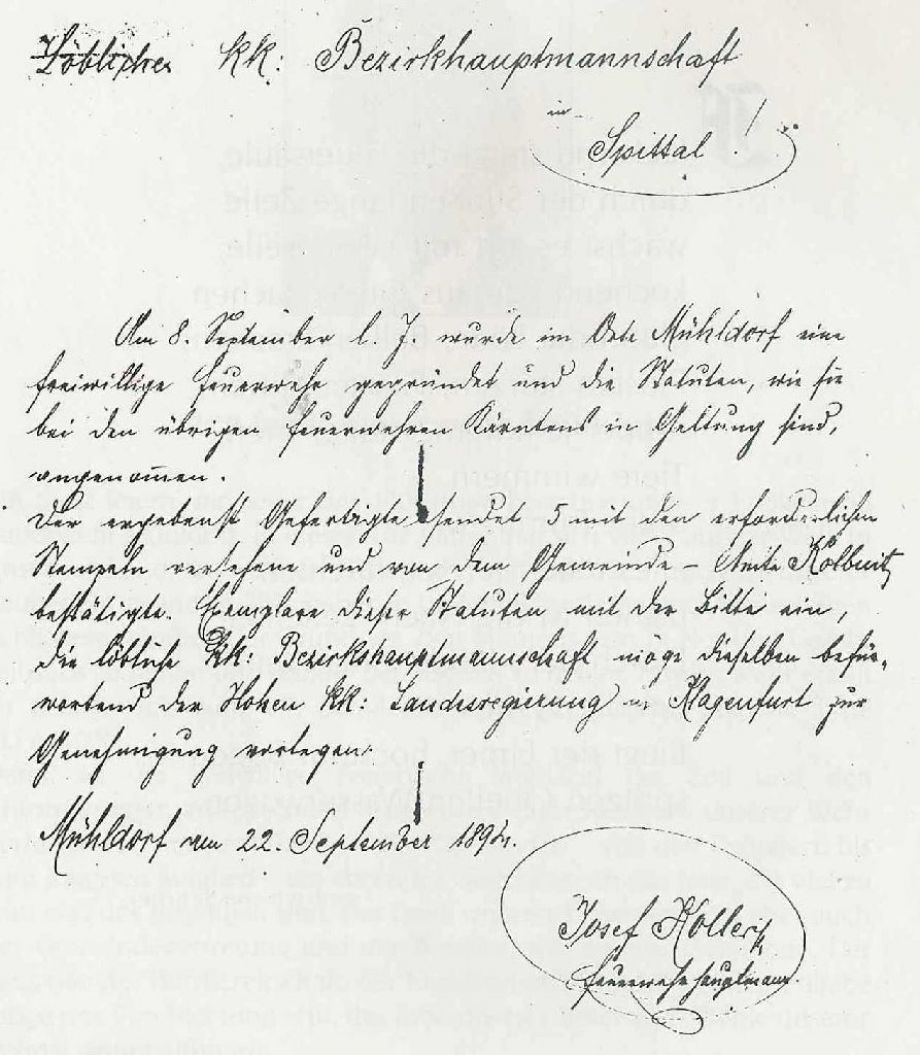 Löbliche kk: Bezirkhauptmannschaft
in
Spittal!
Am 8. September l. J. wurde im Orte Mühldorf eine
freiwillige Feuerwehr gegründet und die Statuten, wie sie
bei den übrigen Feuerwehren Kärntens in Geltung sind,
angenom̅en.
Der ergebenst Gefertigte sendet 5 mit den erforderlichen
Stempeln versehene und von dem Gemeinde-Amte Kolbnitz
bestätigte Exemplare dieser Statuten mit der Bitte ein,
die löbliche kk: Bezirkshauptmannschaft möge dieselben befür-
wortend der Hohen kk: Landesregierung in Klagenfurt zur
Genehmigung vorlegen.
Mühldorf am 22. September 1894.
Josef Koller
Feuerwehrhauptmann.